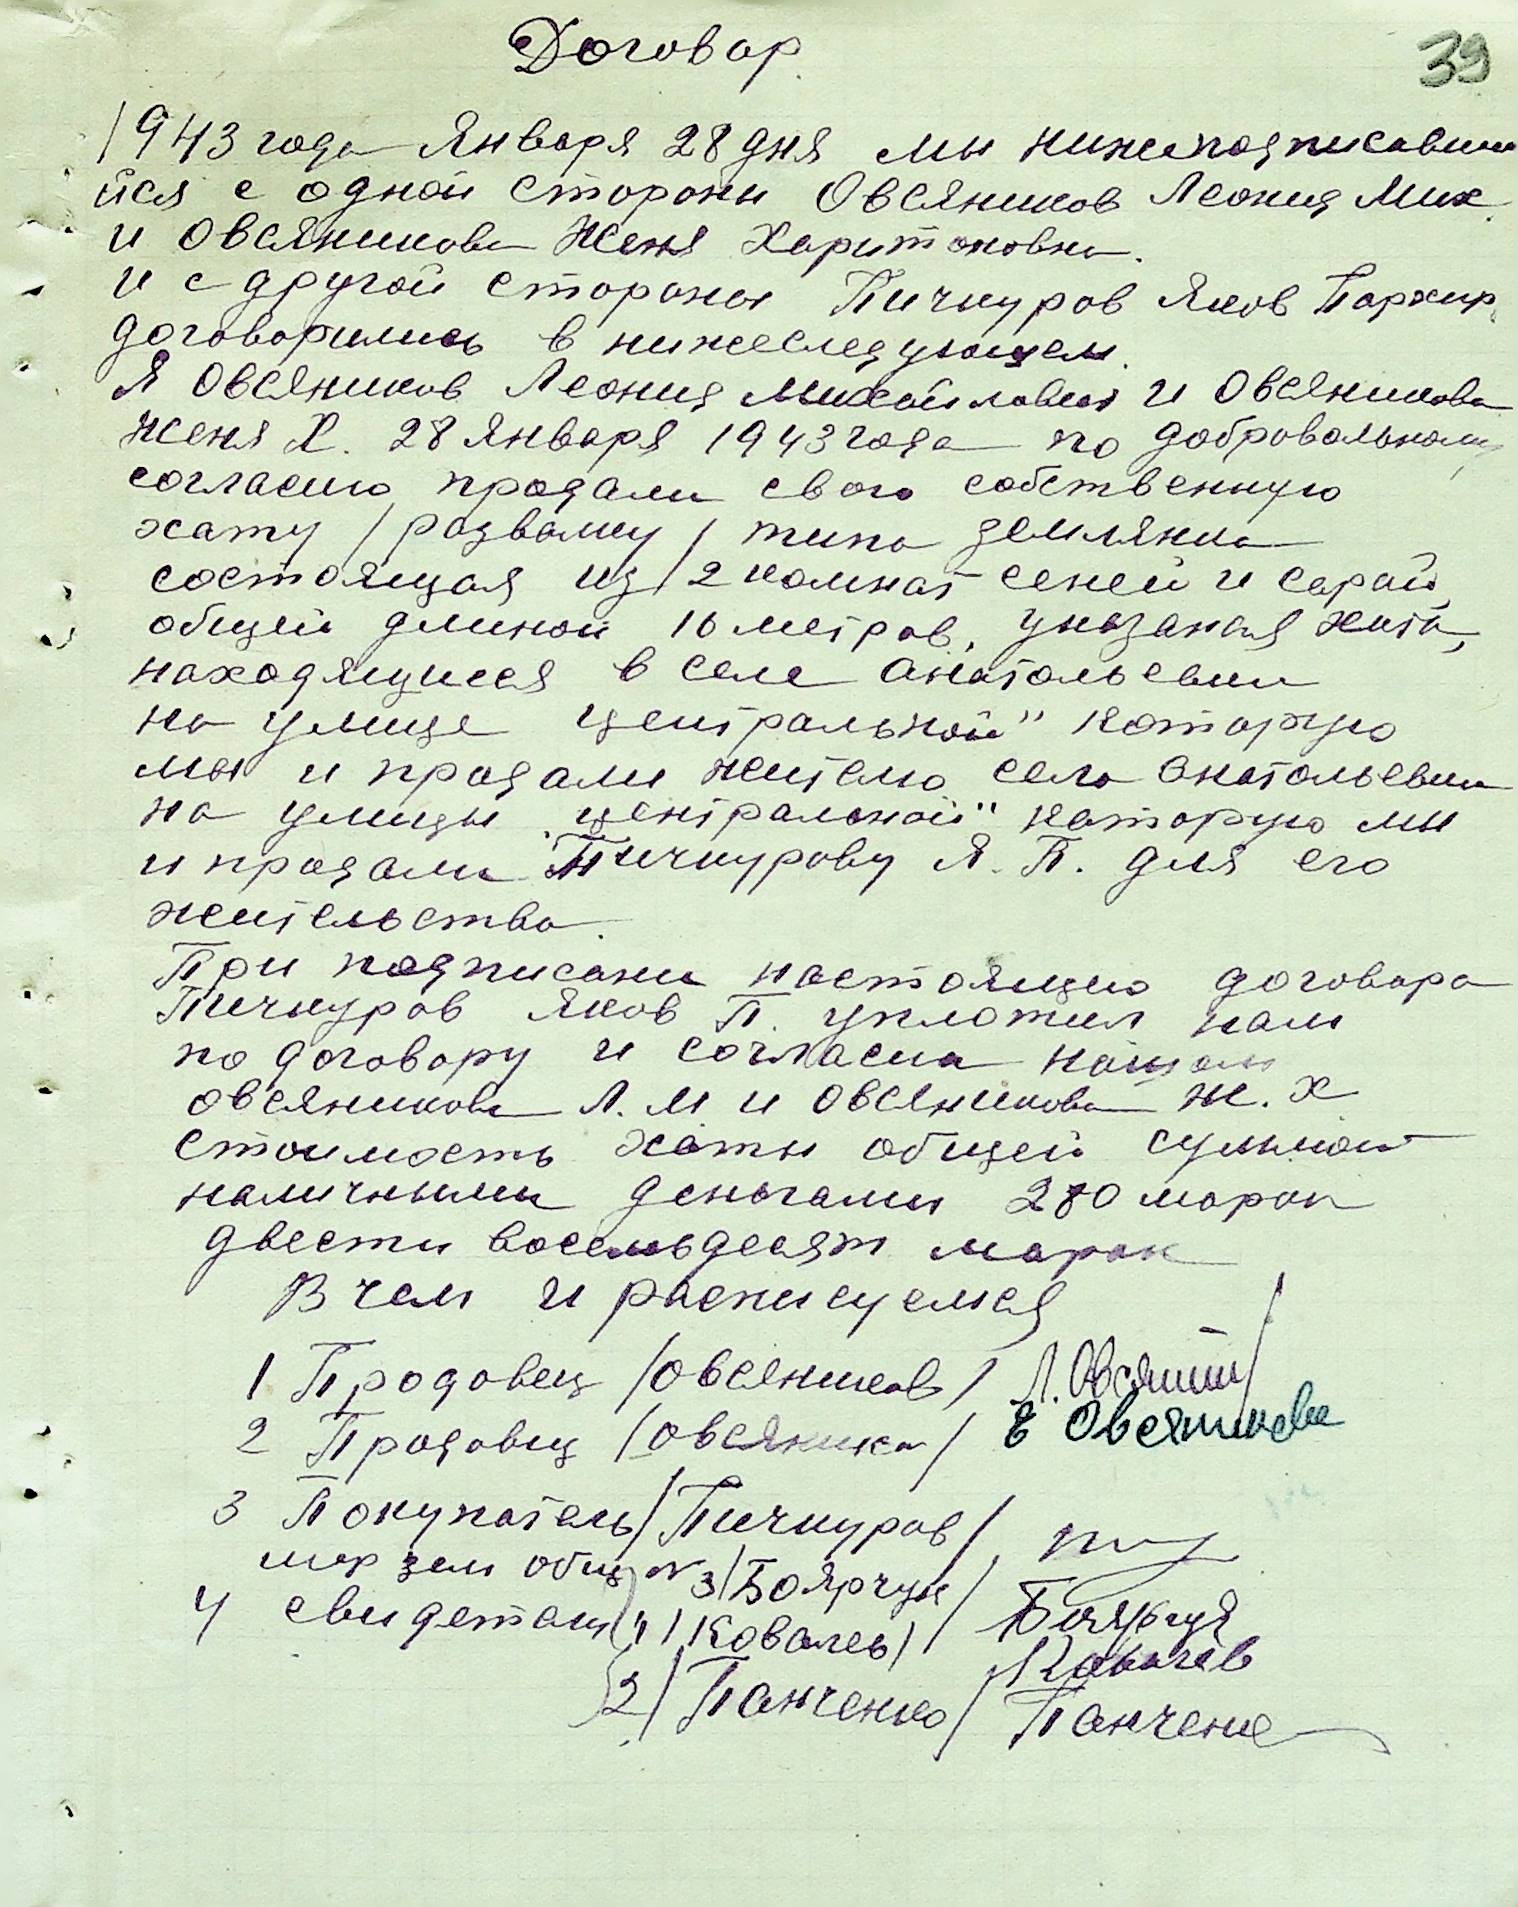 Договор
39
1943 года Января 28 дня мы нижеподписавши
йся с одной стороны Овсяников Леонид Мих.
и Овсяникова Женя Харитоновна.
и с другой стороны Пичкуров Яков Порхир.
договорились в нижеследующем.
Я Овсяников Леонид Михайлович и Овсяникова
Женя Х. 28 Января 1943 года по добровольному
согласию продали свою собственную
хату /развалку/ типа землянка
состоящая из 2 комнат сеней и сарай
общей длиной 16 метров, указаная хата,
находящиеся в селе Анатольевки
на улице Центральной" которую
мы и продали жителю села Анатольевки
на улицы "центральной" которую мы
и продали Пичкурову Я. П. для его
жительства.
При подписани настоящию договора
Пичкуров Яков П. уплотил нам
по договору и согласия
Овсяникова Л. М и Овсяникова Ж. Х
стоимость хаты общей суммой
наличными деньгами 280 марок
двести восемьдесят марок
В чем и расписуемся
1 Продовец /Овсяников/ Л. Овсяник
2 Продовец /Овсяника/ Е Овсяникова
3 Покупатель /Пичкуров/
зем общ № 3 /Боярчук/ Боярчук
4 свидетели 1/ Ковалев/ Ковалев
2/ Панченко/ Панченко